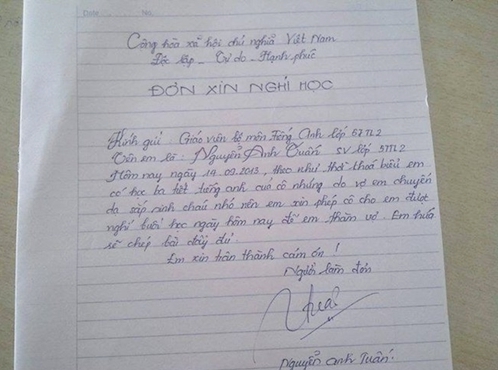 Date No.
Cộng hòa xã hội chủ nghĩa Việt Nam
Độc lập - Tự do - Hạnh phúc
ĐƠN XIN NGHỈ HỌC
Kính gửi Giáo viên bộ môn Tiếng Anh lớp 57TL2
Tên em là: Nguyễn Anh Tuấn SV lớp 57TL2
Hôm nay ngày 14.09.2013, theo như thời thoá biểu em
có học ba tiết tiếng anh của cô nhưng do vợ em chuyển
dạ sắp sinh cháu nhỏ nên em xin phép cô cho em được
nghỉ buổi học ngày hôm nay để em thăm vợ. Em hứa
sẽ chép bài đầy đủ.
Em xin trân thành cám ơn!
Người làm đơn
Nguyễn Anh Tuấn.